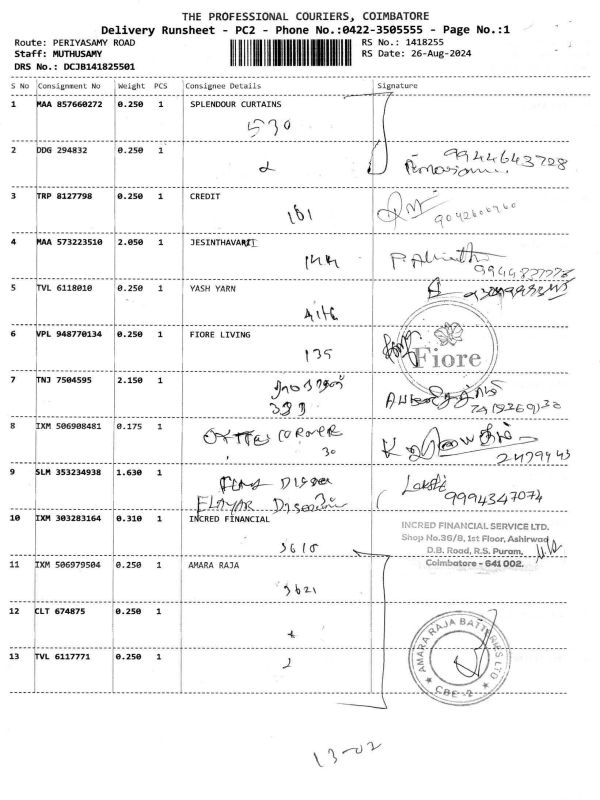 THE PROFESSIONAL COURIERS, COIMBATORE
Delivery Runsheet - PC2 - Phone No.:0422-3505555 - Page No.:1
Route: PERIYASAMY ROAD RS No.: 1418255
Staff: MUTHUSAMY RS Date: 26-Aug-2024
DRS No.: DCJB141825501
S No Consignment No Weight PCS Consignee Details Signature
1 MAA 857660272 0.250 1 SPLENDOUR CURTAINS
530
2 DDG 294832 0.250 1
9944643728
3 TRP 8127798 0.250 1 CREDIT
161
4 MAA 573223510 2.050 1 JESINTHAVARIT
144
5 TVL 6118010 0.250 1 YASH YARN
6 VPL 948770134 0.250 1 FIORE LIVING
135
Fiore
7 TNJ 7504595 2.150 1
8 IXM 506908481 0.175 1
30
9 SLM 353234938 1.630 1
9994347074
10 IXM 303283164 0.310 1 INCRED FINANCIAL
INCRED FINANCIAL SERVICE LTD.
Shop No.36/8, 1st Floor, Ashirwad
D.B. Road, R.S. Puram,
Coimbatore - 641 002.
11 IXM 506979504 0.250 1 AMARA RAJA
3621
12 CLT 674875 0.250 1
13 TVL 6117771 0.250 1
AMARA RAJA BATTERIES LTD
CBE-2
13-02